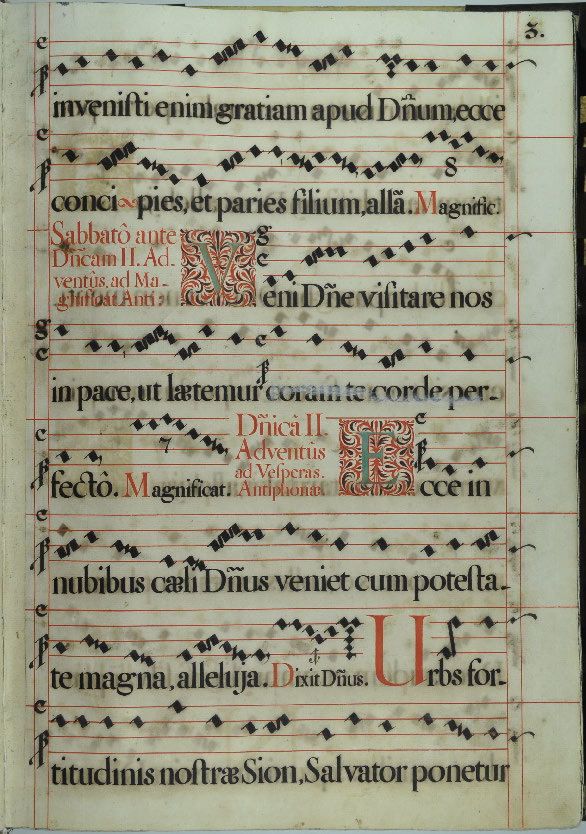 3.
invenisti enim gratiam apud Dñum, ecce
conci~pies, et paries filium, allã. Magnific.
8
Sabbatô ante
Dñicam II. Ad-
ventûs, ad Ma-
gnificat Anti:
Veni Dñe visitare nos
in pace, ut lætemur coram te corde per-
fectô. Magnificat.
7
Dñicâ II.
Adventûs
ad Vesperas.
Antiphonæ
Ecce in
nubibus cæli Dñus veniet cum potesta-
te magna, alleluja. Dixit Dñus. Urbs for-
titudinis nostræ Sion, Salvator ponetur